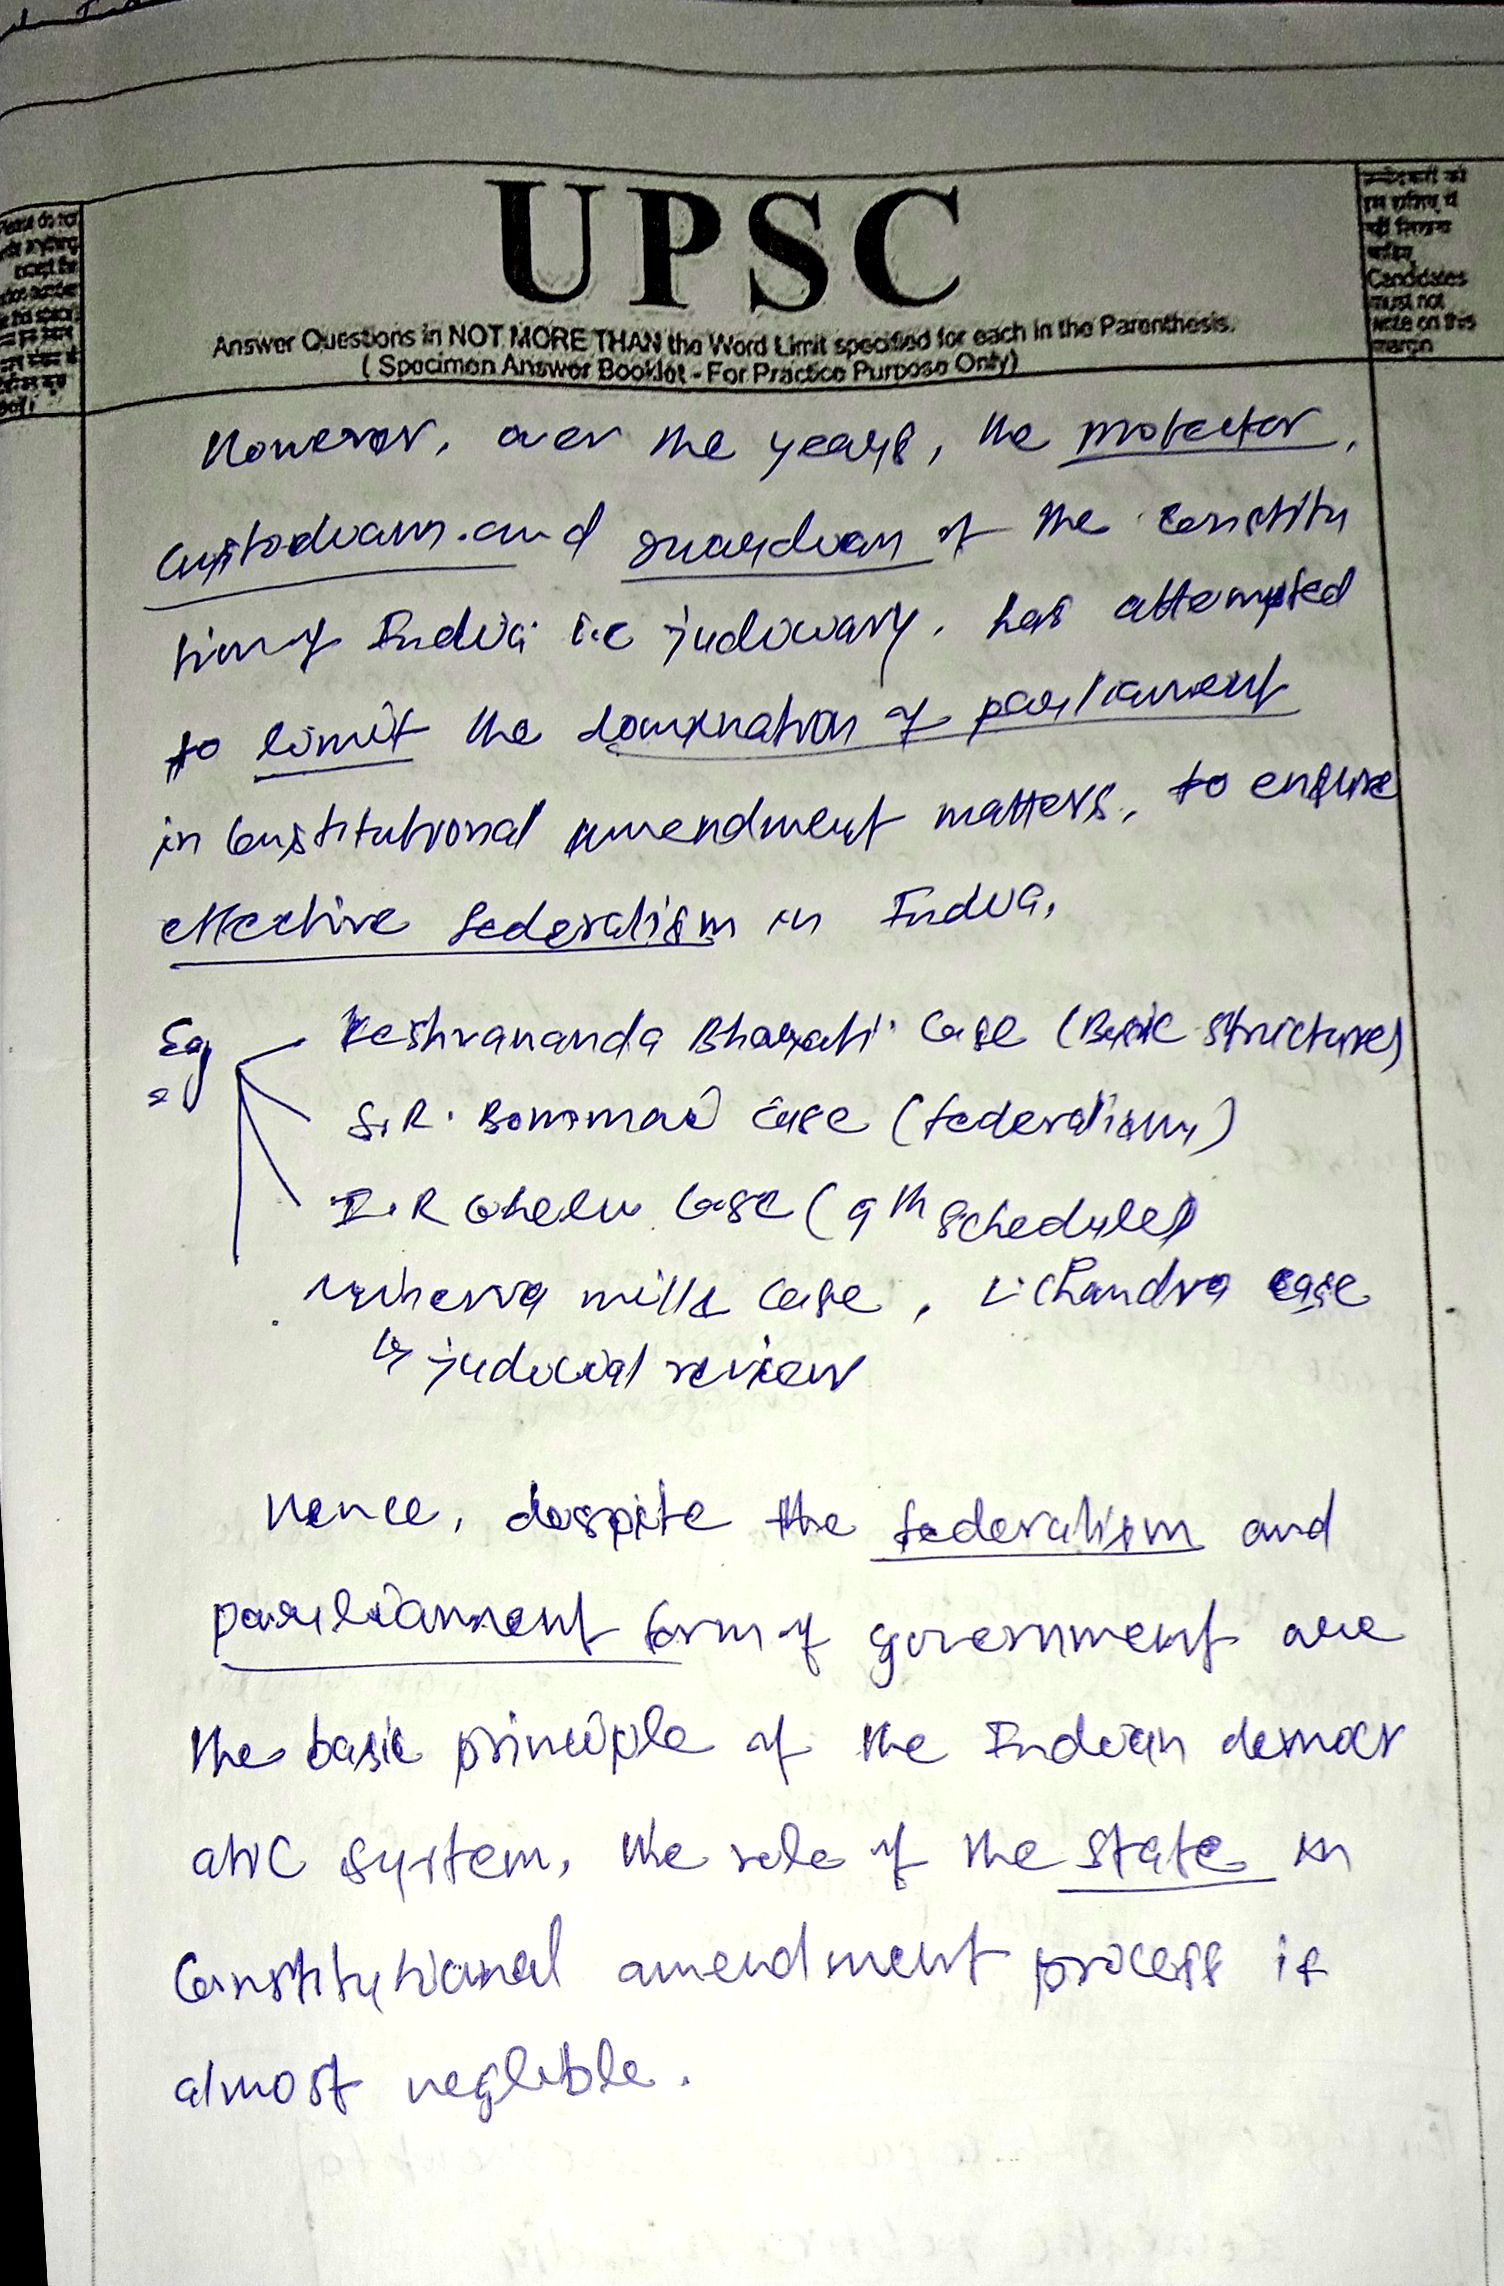 UPSC
Answer Questions in NOT MORE THAN the Word Limit specified for each in the Parenthesis.
( Specimen Answer Booklet - For Practice Purpose Only)
Candidates
must not
write on this
margin
However, over the years, the protector,
custodian and guardian of the constitu
tion of India i.e judiciary, has attempted
to limit the domination of parliament
in constitutional amendment matters, to ensure
effective federalism in India.
Eg
Keshvananda Bharati Case (Basic structure)
S.R. Bommai case (federalism)
I.R Cohelu Case (9th schedule)
Minerva mills case, L. Chandra case
↳ judicial review
Hence, despite the federalism and
parliament form of government are
the basic principle of the Indian democr
atic system, the role of the state in
Constitutional amendment process is
almost neglible.